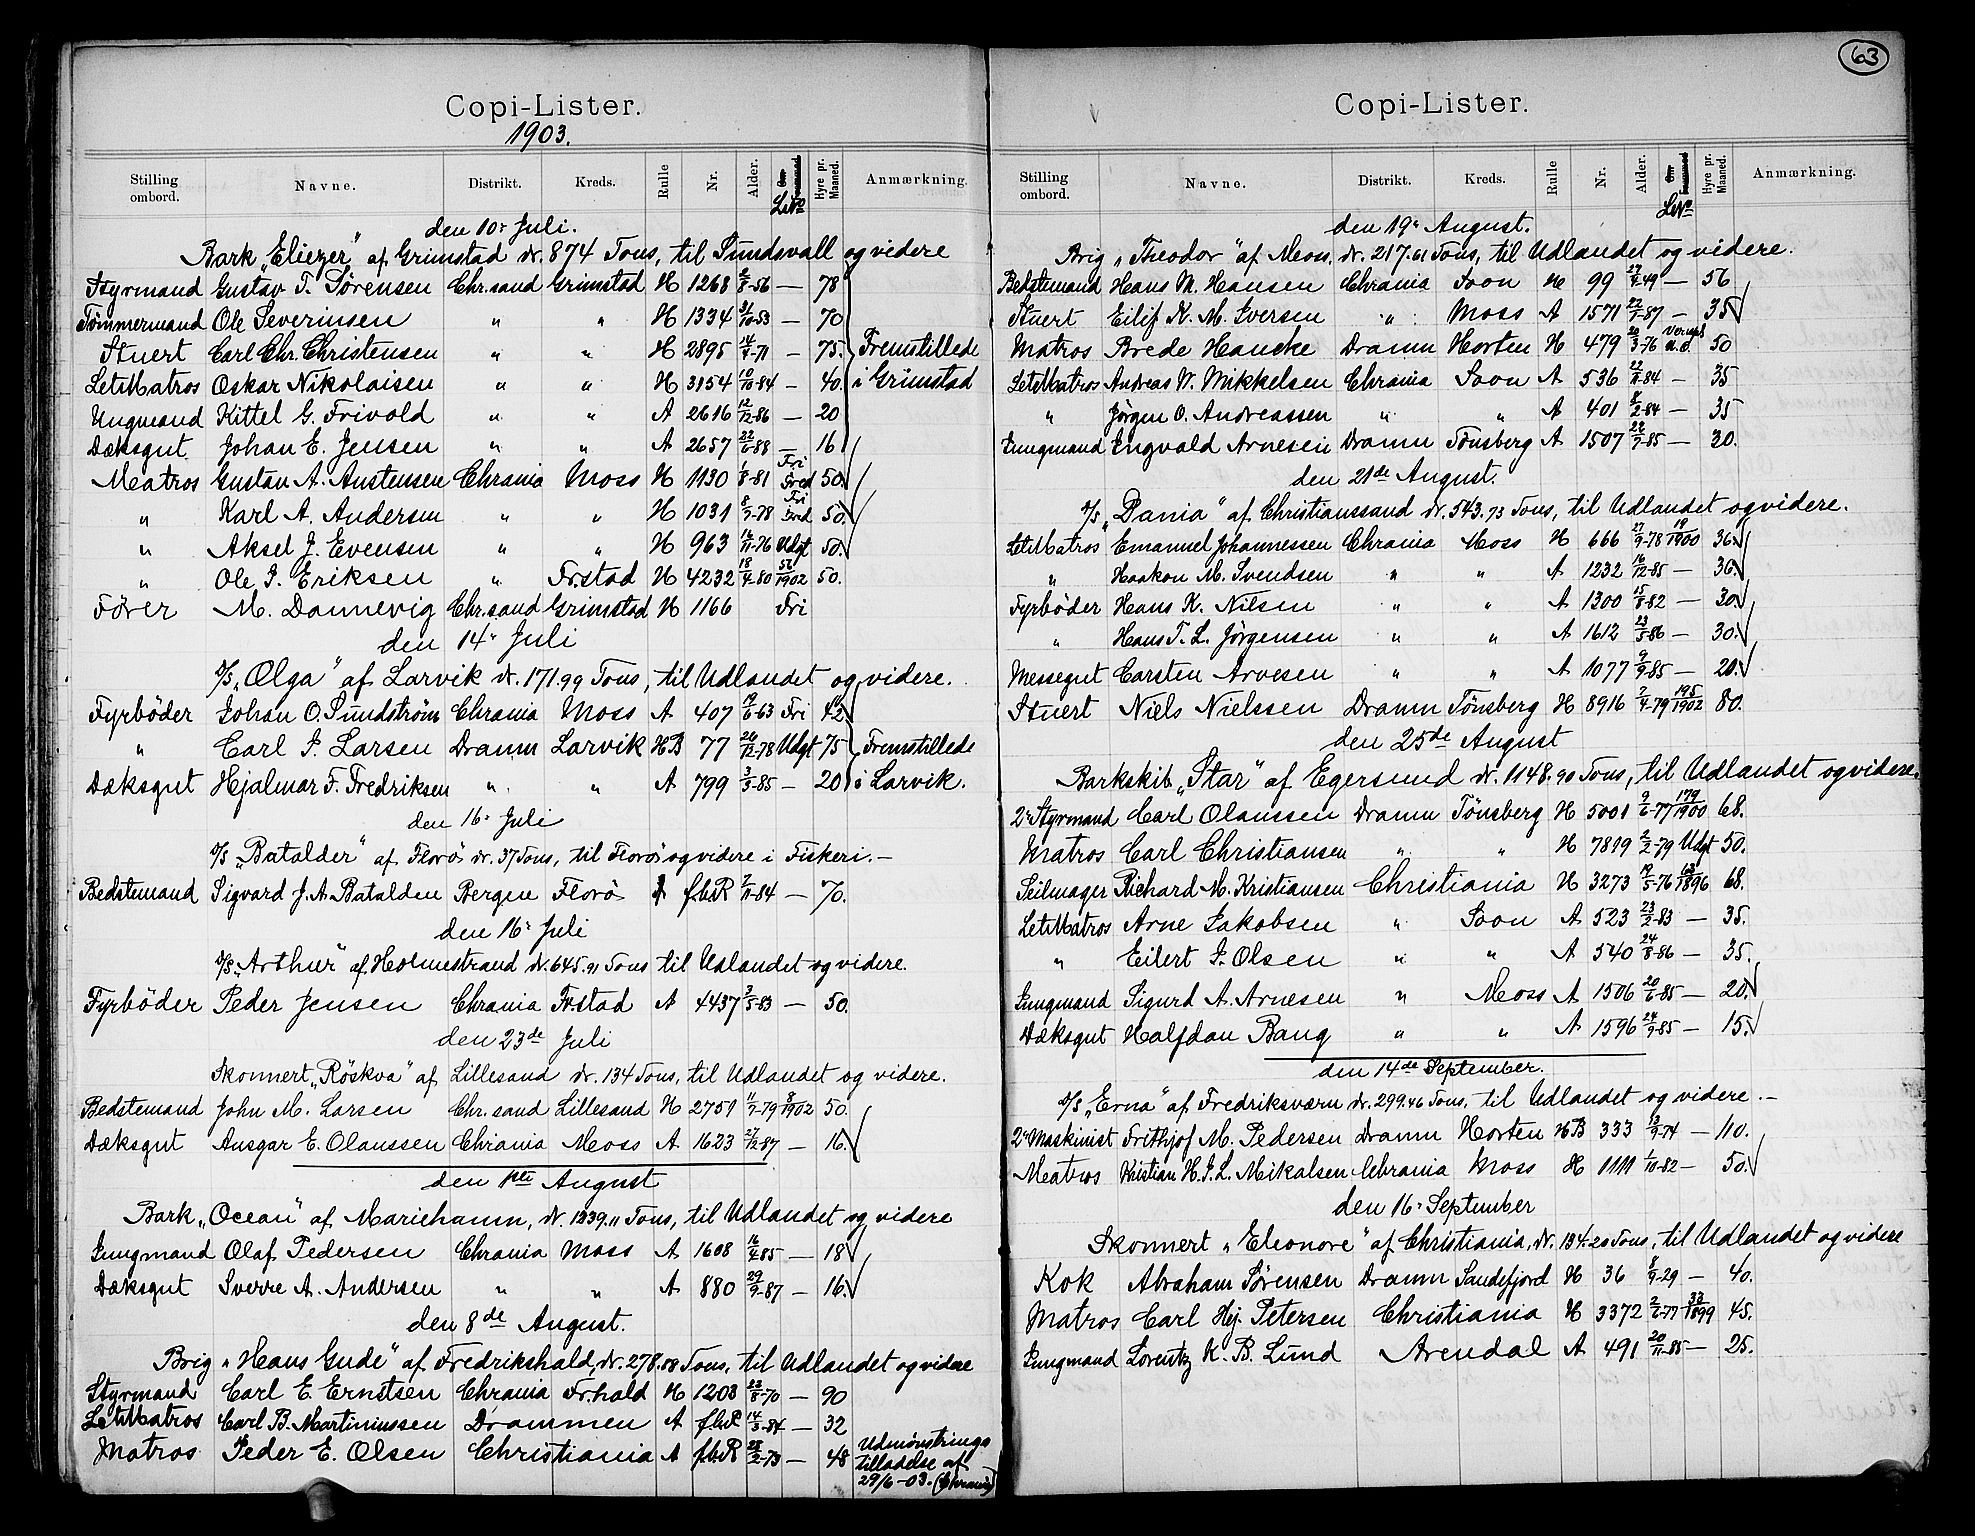 Copi-Lister.
1903.
Stilling ombord. Navne. Distrikt. Kreds. Rulle Nr. Alder. Hyre pr. Maaned. Anmærkning.
den 10. Juli.
Bark „Eliezer" af Grimstad dr. 874 Tons, til Sundsvall og videre
Styrmand Gustav T. Sørensen Chr.sand Grimstad H 1268 2/8-56 — 78
Tømmermand Ole Severinsen " " H 1334 31/10-53 — 70
Stuert Carl Chr. Christensen " " H 2895 14/4-71 — 75. Fremstillede
LetMatros Oskar Nikolaisen " " H 3154 10/10-84 — 40. i Grimstad
Ungmand Kittel G. Frivold " " A 2616 12/12-86 — 20
Dæksgut Johan E. Jensen " " A 2657 22/6-88 — 16
Matros Gustav A. Austensen Chrania Moss H 1130 1/8-81 Fri Fred 50.
" Karl A. Andersen " " H 1031 8/9-78 Fri Fred 50.
" Aksel J. Evensen " " H 963 16/11-76 Udgt 50.
" Ole J. Eriksen " Fr.stad H 4232 18/4-80 56/1902 50.
Fører M. Dannevig Chr.sand Grimstad H 1166 Fri
den 14. Juli
D/S „Olga" af Larvik dr. 171.99 Tons, til Udlandet og videre.
Fyrbøder Johan O. Sundström Chrania Moss A 407 19/6-63 Fri 42.
" Carl J. Larsen Dramn Larvik HB 77 26/12-78 Udgt 75 Fremstillede
Dæksgut Hjalmar F. Fredriksen " " A 799 3/3-85 — 20 i Larvik.
den 16. Juli
D/S „Batalder" af Florö dr. 37 Tons, til Florö og videre i Fiskeri. —
Bedstemand Sigvard J. A. Batalden Bergen Florö f.b.R 7/11-84 — 70.
den 16. Juli
D/S „Arthur" af Holmestrand dr. 645.91 Tons til Udlandet og videre.
Fyrbøder Peder Jensen Chrania Fr.stad A 4437 3/5-83 — 50.
den 23de Juli
Skonnert „Röskva" af Lillesand dr. 134 Tons, til Udlandet og videre.
Bedstemand John M. Larsen Chr.sand Lillesand H 2751 11/7-79 8/1902 50.
Dæksgut Ansgar E. Olaussen Chrania Moss A 1623 27/12-87 — 16.
den 1ste August
Bark „Ocean" af Mariehamn, dr. 1239.11 Tons, til Udlandet og videre
Jungmand Olaf Pedersen Chrania Moss A 1608 16/4-85 — 18
Dæksgut Sverre A. Andersen " " A 880 29/9-87 — 16.
den 8de August.
Brig „Hans Gude" af Fredrikshald, dr. 278.88 Tons, til Udlandet og videre
Styrmand Carl E. Ernstsen Chrania Fr.hald H 1203 23/8-70 — 90
LetMatros Carl B. Martiniussen Drammen A f.b.R 14/3-84 — 32
Matros Peder E. Olsen Christiania A f.b.R 28/2-73 — 48 Udmønstrings
tilladelse af
29/6-03. (Chrania)
63
Copi-Lister.
Stilling ombord. Navne. Distrikt. Kreds. Rulle Nr. Alder. Hyre pr. Maaned. Anmærkning.
den 19. August.
Brig „Theodor" af Moss, dr. 217.61 Tons, til Udlandet og videre.
Bedstemand Hans M. Hansen Chrania Soon H 99 27/9-49 — 56
Stuert Eilif K. M. Iversen " Moss A 1571 22/7-87 — 35
Matros Brede Hancke Dramn Horten H 479 20/3-76 50
LetMatros Andreas W. Mikkelsen Chrania Soon A 536 22/11-84 — 35
" Jørgen O. Andreassen " " A 401 8/2-84 — 35
Jungmand Engvald Arnesen Dramn Tönsberg A 1507 22/7-85 — 30.
den 21de August.
D/S „Dania" af Christianssand dr. 543.73 Tons, til Udlandet og videre.
LetMatros Emanuel Johannessen Chrania Moss H 666 27/9-78 19/1900 36.
" Haakon M. Svendsen " " A 1232 16/12-85 — 36.
Fyrbøder Hans K. Nilsen " " A 1300 15/8-82 — 30.
" Hans T. L. Jørgensen " " A 1612 23/5-86 — 30.
Messegut Carsten Arvesen " " A 1077 9/9-85 — 20.
Stuert Niels Nielssen Dramn Tönsberg H 8916 7/4-79 195/1902 80.
den 25de August
Barkskib „Star" af Egersund dr. 1148.90 Tons, til Udlandet og videre.
2. Styrmand Carl Olaussen Dramn Tönsberg H 5001 9/6-77 179/1900 68.
Matros Carl Christiansen " " H 7819 2/2-79 Udgt 50.
Seilmager Richard M. Kristiansen Christiania H 3273 19/5-76 63/1896 68.
LetMatros Arne Jakobsen " Soon A 523 23/2-83 — 35.
" Eilert J. Olsen " " A 540 24/8-86 — 35.
Jungmand Sigurd A. Arnesen " Moss A 1506 20/6-85 — 20.
Dæksgut Halfdan Bang " " A 1596 24/9-85 — 15.
den 14de September.
D/S „Erna" af Fredriksværn dr. 299.46 Tons, til Udlandet og videre. —
2. Maskinist Frithjof M. Pedersen Dramn Horten HB 333 13/9-74 — 110.
Matros Kristian H. J. L. Mikalsen Chrania Moss H 1111 1/10-82 — 50.
den 16. September
Skonnert „Eleonore" af Christiania, dr. 134.20 Tons, til Udlandet og videre
Kok Abraham Sørensen Dramn Sandefjord H 36 1/9-29 — 40.
Matros Carl Hj. Petersen Christiania H 3372 2/2-77 33/1899 45.
Jungmand Lorentz K. B. Lund Arendal A 491 20/11-85 — 25.